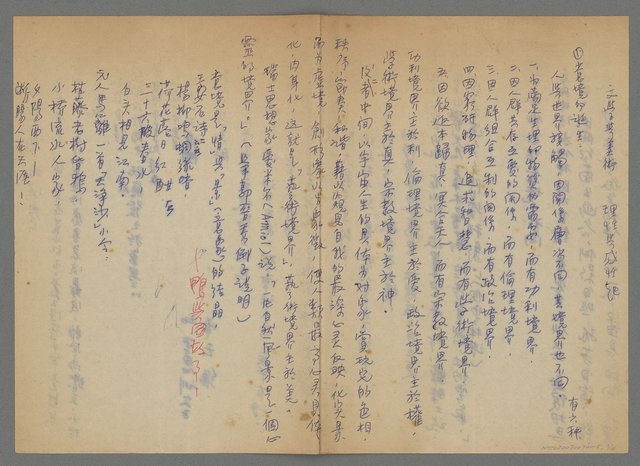 文學與美術　理性與感性
①意境的誕生。
人與世界接觸，因關係層次不同，其境界也不同。有六種
一、為滿足生理的物質的需要，而有功利境界，
二、因人群共存互愛的關係，而有倫理境界，
三、因人群組合互制的關係，而有政治境界，
四、因窮研物理，追求智慧，而有學術境界，
五、因欲返本歸真，冥合天人，而有宗教境界，
功利境界主於利，倫理境界主於愛，政治境界主於權，
學術境界主於真，宗教境界主於神。
後者中間，以宇宙人生的具体為對象，賞玩它的色相，
秩序，節奏，和諧，藉以窺見自我的最深心灵反映，化实景
而為虛境，創形象以為象徵，使人類最高心灵具体
化肉身化，这就是「藝術境界」。藝術境界主於美。
瑞士思想家愛米爾(Amiel)說，「一片自然風景是一個心
靈的境界。」
意境是「情」與「景」（意象）的结晶
王安石詩
楊柳鳴蜩綠暗，
荷花落日紅酣，
三十六陂春水，
白头相見江南。
元人馬致遠一首「天净沙」小令：
枯藤老樹昏鴉，
小橋流水人家，
夕陽西下—
断腸人在天涯！